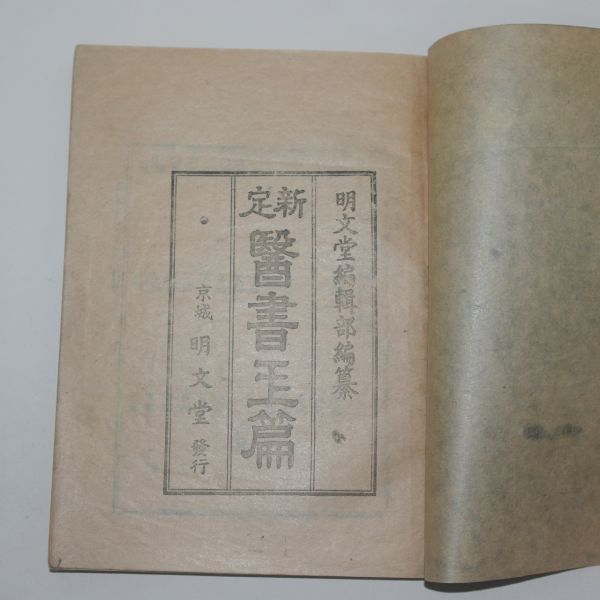 明文堂編輯部編纂
新定
醫書玉篇
京城 明文堂 發行